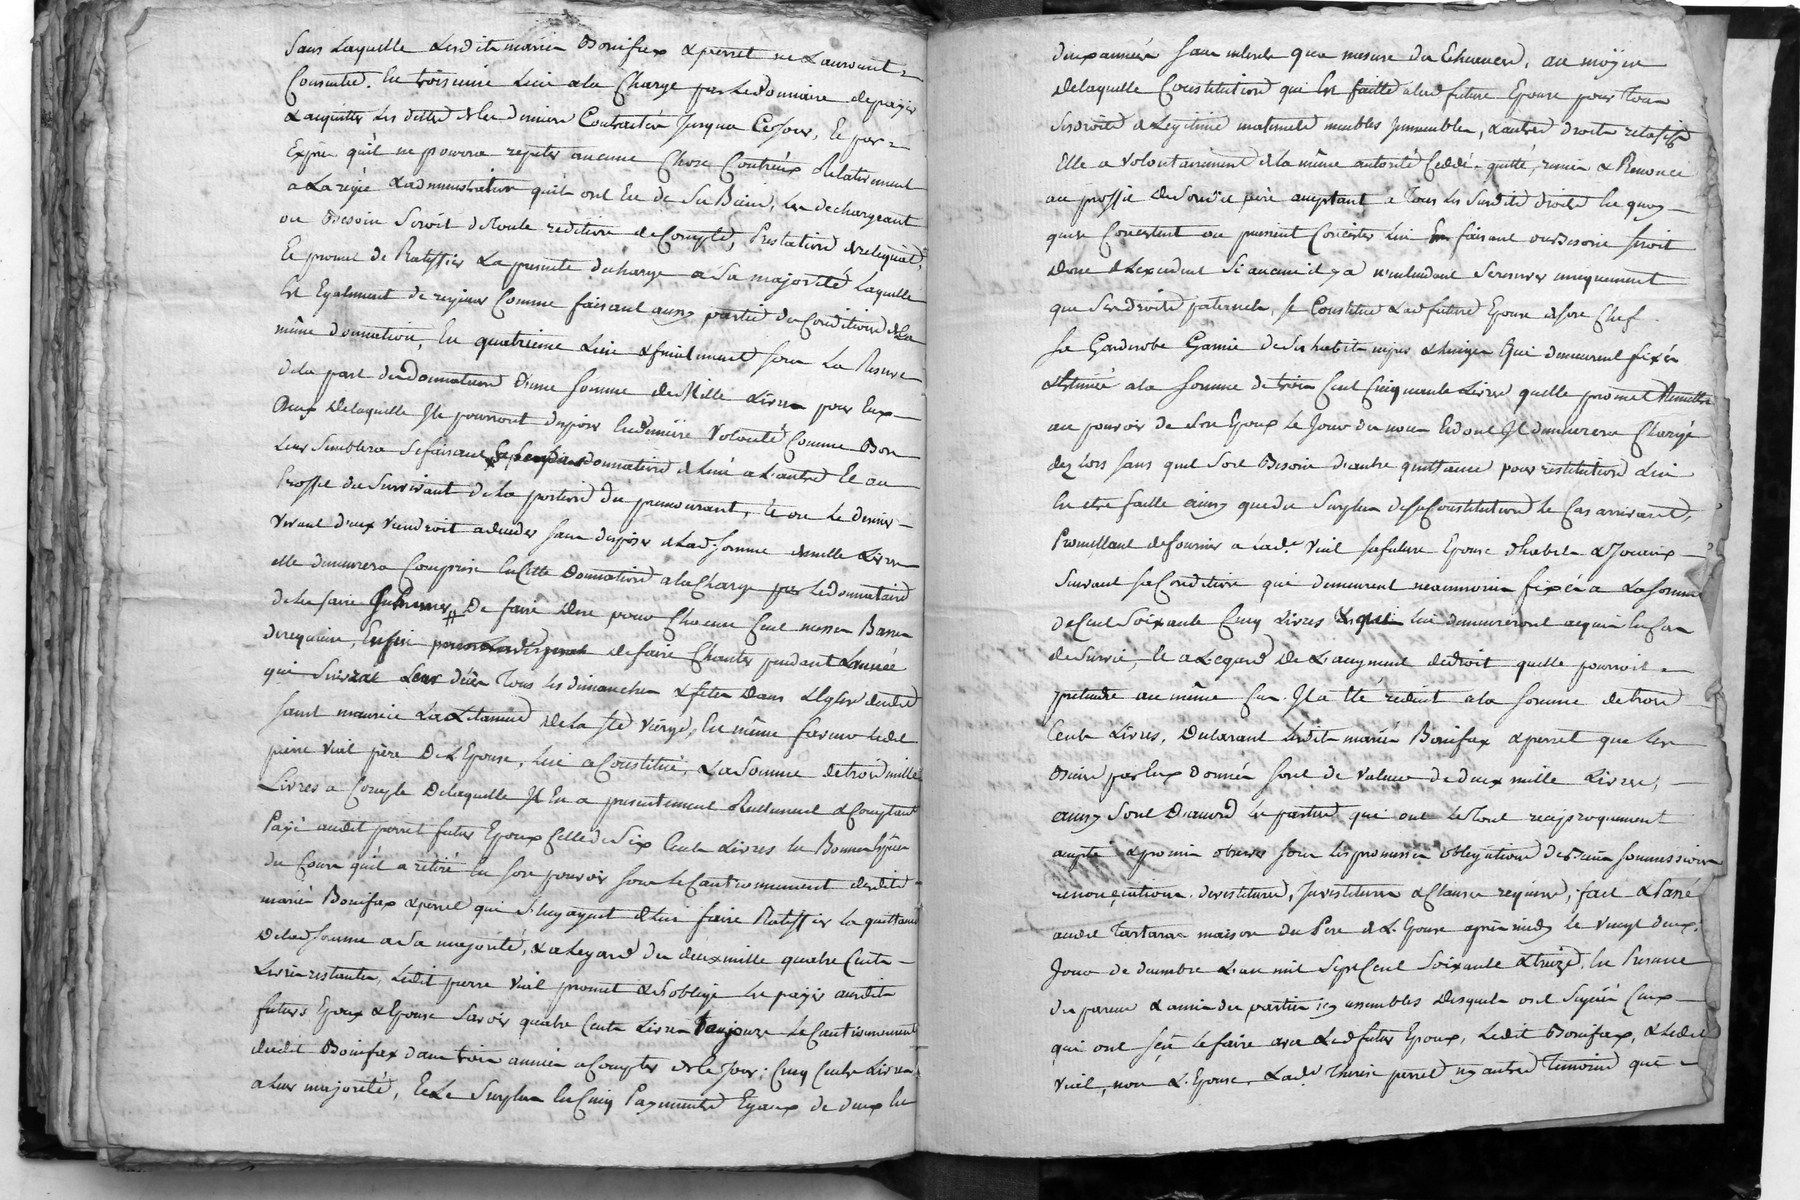 Sans Laquelle Lesdits mariés Bonifax & perret ne L'auroient
Consentie. En troisieme Lieu a la Charge par Ledonataire depayer
& acquitter les dettes de les derniers Contractées Jusqua Cejour, Et par
Exprès qu'il ne pourra repeter aucune Chose Contreux Relativement
a La regie & administration qu'ils ont Eu de Ses Biens, les dechargeant
ou Besoin Seroit detoute reditions de Compte, Prestations de reliquat,
Et promet de Ratiffier La presente decharge a Sa majorité Laquelle
Est Egalement de rigueur Comme faisant aussy partie des Conditions de la
même donnation, En quatrieme Lieu & finalement sous La Reserve
de la part des Donnateurs d'une somme de Mille Livres pour Eux
Deux de laquelle Ils pourront disposer En derniere Volonté Comme Bon
Leur Semblera Se faisant donnations de Lun a L'autre Et au
Proffit du Survivant de la portion du premourant, Et ou Le dernier
Vivant d'eux Viendroit a deceder sans disposer de Lad. somme de mille Livres
elle demeurera Comprise En Cette Donnation a la Charge par Le donnataire
de les faire De faire dire pour Chacun Cent messes Basses
de requiem, de faire Chanter pendant L'année
qui Suivra Leur décès Tous les dimanches & fetes Dans L'Eglise dudit
saint maurice La Litanie de la Ste Vierge, En même faveur ledit
pierre Viel père De L'Epouse, lui a Constitué, La Somme de trois mille
Livres a Compte De laquelle Il En a presentement Reellement & Comptant
Payé audit perret futur Epoux Celle de Six Cents Livres En Bonnes Espèces
du Cours qu'il a retiré En son pouvoir sous le Cautionnement desdits
mariés Bonifax & perret qui
De lad. somme a Sa majorité, & a L'egard des deux mille quatre Cents
Livres restantes, Ledit pierre Viel promet & s'oblige les payer audits
futurs Epoux & Epouse Savoir quatre Cents Livres Toujours
dudit Bonifax dans trois années a Compter de Ce Jour; Cinq Cents Livres
a Leur majorité, Et Le Surplus En Cinq Payements Egaux de deux En
deux années sans interets qua mesure du Echeance, au moyen
de laquelle Constitution qui Est faitte a lad. future Epouse pour Tous
Ses droits de Legitime maternels meubles Immeubles, & autres droits relatifs
Elle a Volontairement & de la même autorité Ceddé, quitté, remis & Renonce
au proffit de Son dit père acceptant a Tous les Susdits droits En quoy
quils Consistent ou puissent Consister Lui En faisant ou Besoin Seroit
Don & Lexcedent Si aucun il y a nentendant Se reserver uniquement
que Ses droits paternels, Se Constitue Lad. future Epouse de son Chef
Sa Garderobe Garnie de Ses habits nipes & linges Qui demeurent fixés
& Estimés a la Somme de trois Cent Cinquante Livres quelle promet Remettre
au pouvoir de Son Epoux Le Jour des noces Et dont Il demeurera Chargé
dez Lors sans quil Soit Besoin d'autre quittance pour restitution Lui
En etre faitte ainsy que du Surplus de Sa Constitution le Cas arrivant,
Promettant de fournir a Lad. Viel Sa future Epouse d'habits & Joeaux
Suivant Sa Condition qui demeurent neanmoins fixés a La Somme
de Cent Soixante Cinq Livres & qui lui demeureront acquis En Cas
de Survie, Et a L'egard De L'augment de droit quelle pourroit
pretendre au même Cas Il a Eté reduit a la somme de trois
Cents Livres, Declarant Lesdits mariés Bonifax & perret que les
Biens par Eux donnés sont de Valeur de deux mille Livres,
ainsy Sont D'accord les parties qui ont le Tout reciproquement
accepté & promis observer sous les promesses obligations de Biens soumissions
renonciations devestitures, Investitures & Clauses requises, fait & Passé
audit maison du Pere de L'Epouse après midy le Vingt deux.e
Jour de decembre L'an mil Sept Cent Soixante & treize, En Presence
des parens & amis des parties icy assembles desquels ont Signé Ceux
qui ont sçu le faire avec Led. futur Epoux, Ledit Bonifax, & Ledit
Viel, non L'Epouse, Lad.e Therese perret ny autres Temoins que